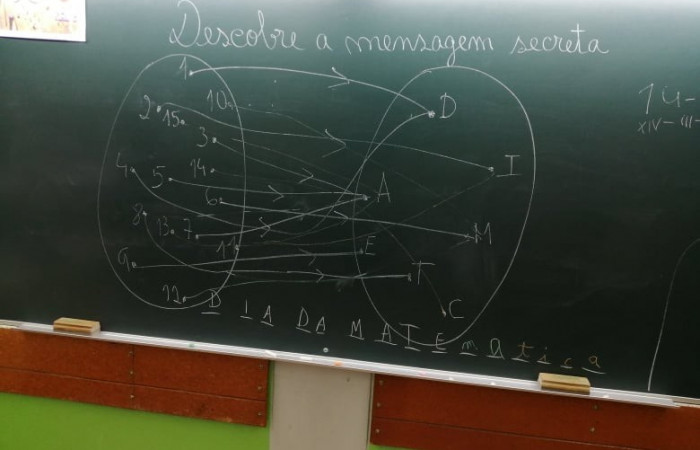 Descobre a mensagem secreta
1
2
10
15
3
4
5
14
6
8
13
7
11
9
12
D
I
A
M
E
T
C
D I A D A M A T E m a t i c a
14-
XIV-III-